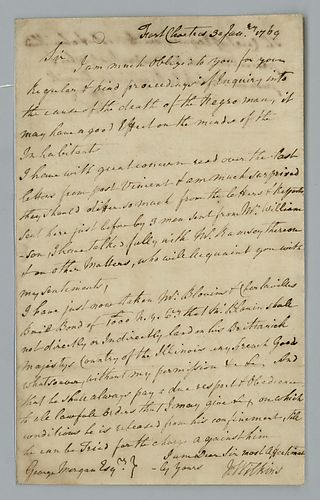 Fort Chartres 30 Jany. 1769
Sir
I am much Obliged to you for your
Regular & kind proceedings of Inquiry into
the cause of the death of the Negro man, it
may have a good Effect on the minds of the
Inhabitants
I have with great concern read over the last
letters from post Vincent & am much surprised
they should differ so much from the letters & Reports
sent here just before by 3 men sent from Mr. William
-son, I have talked fully with Mr. Rumsey thereon
& on other Matters, who will Acquaint you with
my sentiments,
I have just now taken Mr. Blouin &
Bond of 1000 that Mr. Blouin shall
not directly or Indirectly land in his Britannick
Majestys Country of the Illinois any French Goods
whatsoever, without my permission &c. &c. And
that he shall always pay a due respect & Obedience
to all lawfull Orders that I may give &c, on which
conditions he is released from his confinement, till
he can be Tried for the charge against him
I am Dear Sir most affectionate
George Morgan Esqr. -ly Yours
J Wilkins